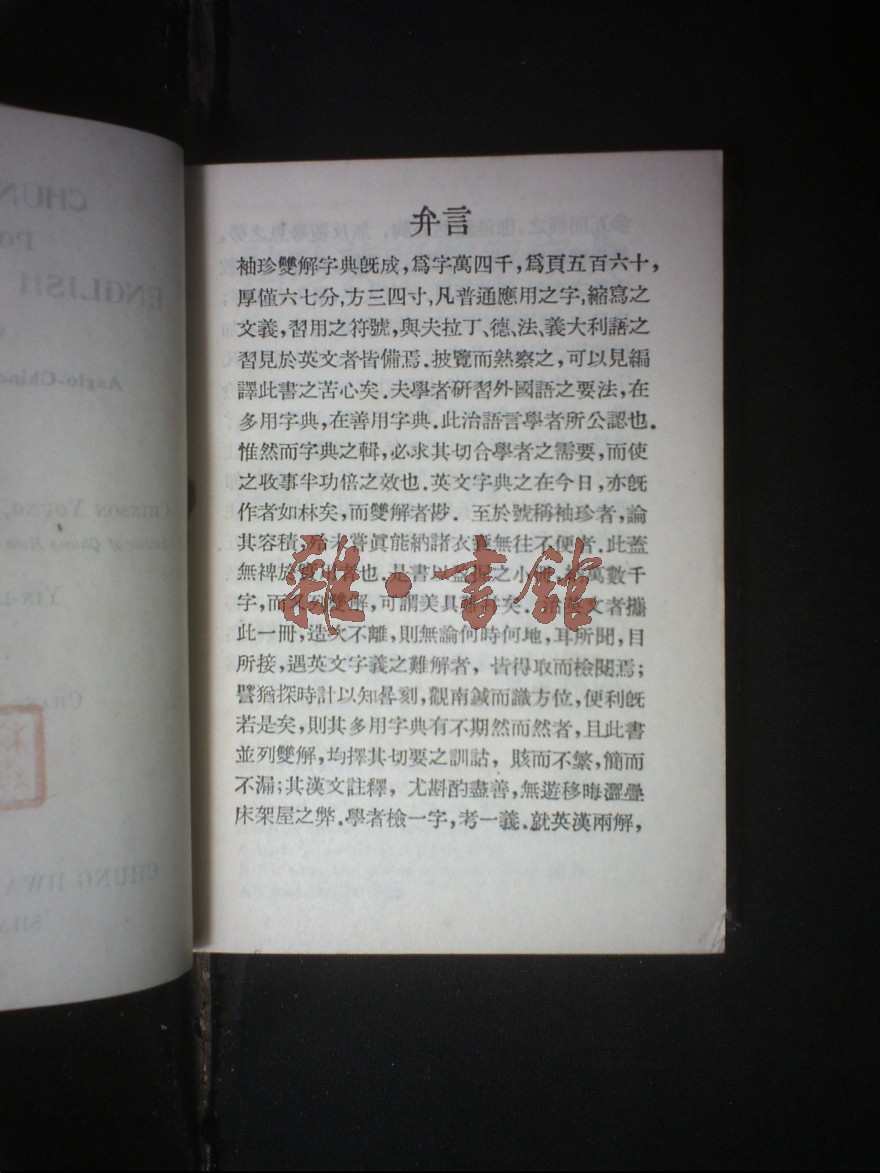 弁言
袖珍雙解字典旣成，爲字萬四千，爲頁五百六十，
厚僅六七分，方三四寸，凡普通應用之字，縮寫之
文義，習用之符號，與夫拉丁、德、法、義大利語之
習見於英文者皆備焉．披覽而熟察之，可以見編
譯此書之苦心矣．夫學者研習外國語之要法，在
多用字典，在善用字典．此治語言學者所公認也．
惟然而字典之輯，必求其切合學者之需要，而使
之收事半功倍之效也．英文字典之在今日，亦旣
作者如林矣，而雙解者尠．至於號稱袖珍者，論
其容積，殆未嘗眞能納諸衣囊無往不便者．此蓋
無裨於實用者也．是書以盈握之小冊，
萬數千
字，而
列雙解，可謂美具難
矣．治英文者攜
此一冊，造次不離，則無論何時何地，耳所聞，目
所接，遇英文字義之難解者，皆得取而檢閱焉；
譬猶探時計以知晷刻，觀南鍼而識方位，便利旣
若是矣，則其多用字典有不期然而然者，且此書
並列雙解，均擇其切要之訓詁，賅而不繁，簡而
不漏；其漢文註釋，尤斟酌盡善，無遊移晦澀疊
床架屋之弊．學者檢一字，考一義．就英漢兩解，
雜·書館